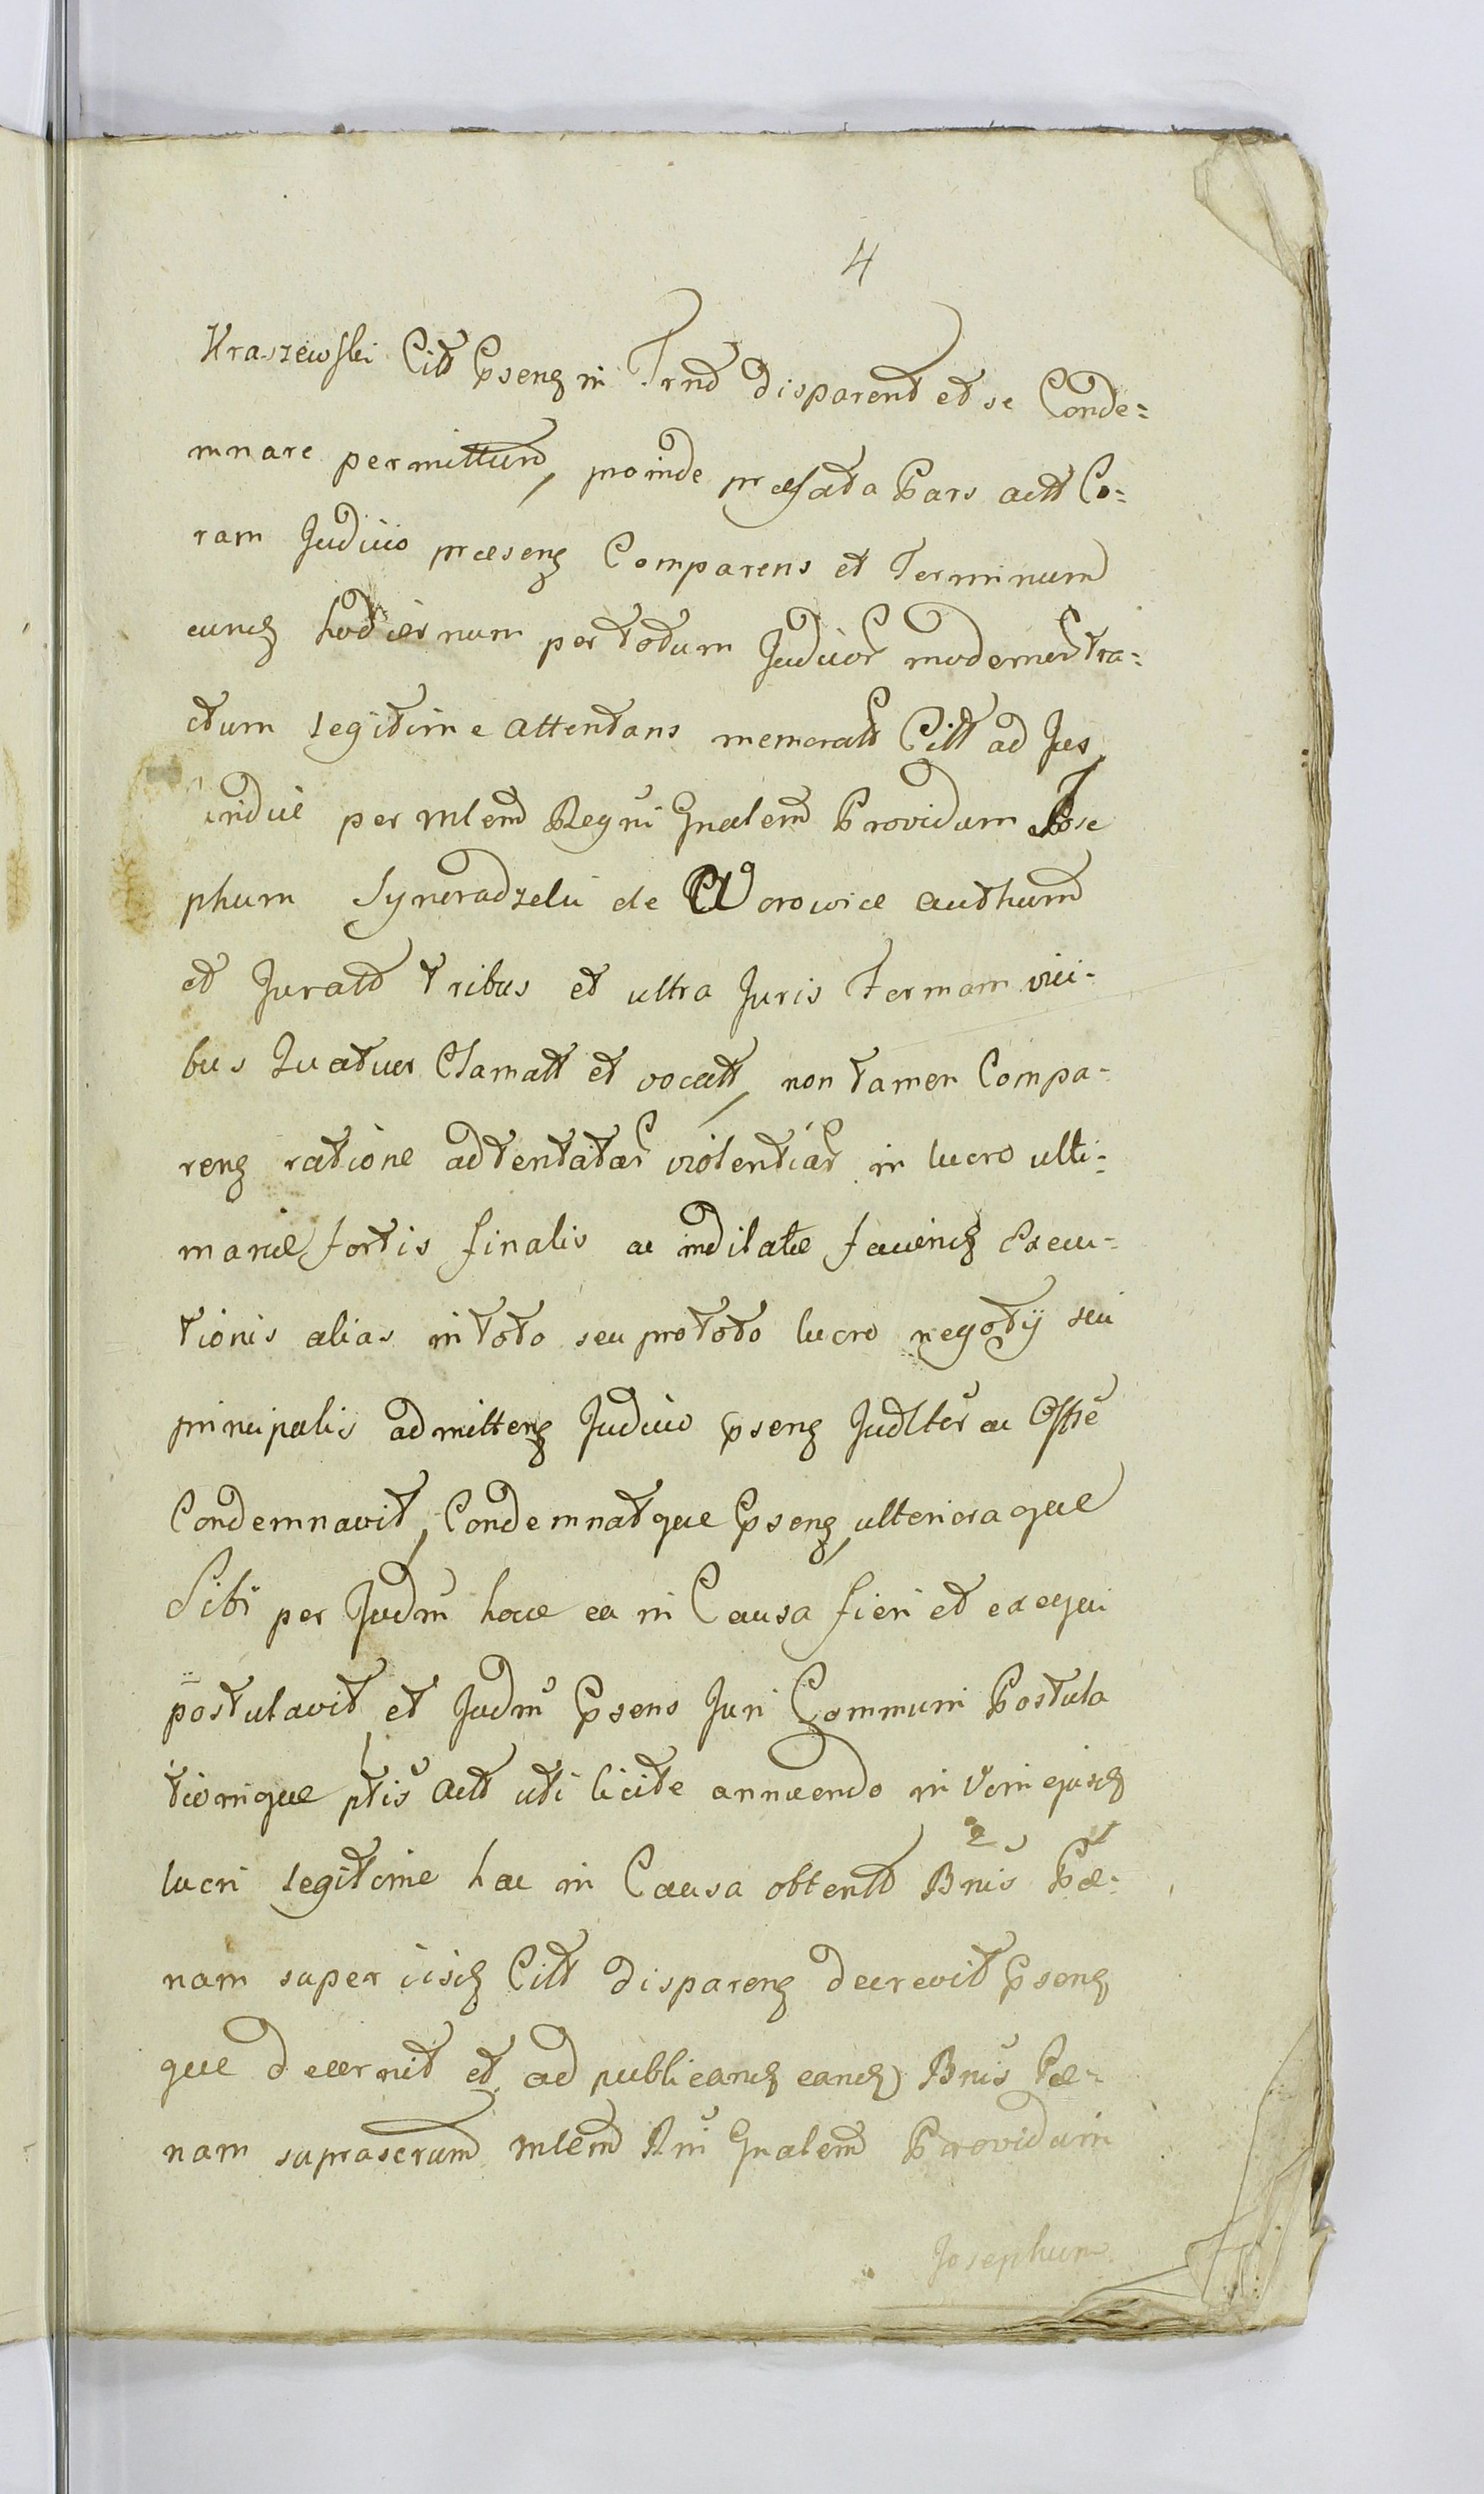 4
Kraszewski Citt pseng in Trnō disparent et se Conde=
mnare permittunt, proinde præfata Pars actt Co=
ram Judicio præseng Comparens et Terminum
eundꝫ hodiernum per totum Judicioꝝ modernoꝝ tra=
ctum legitime attentans memoratt Citt ad Jus
indui per Mlem Regni Gnalem Providum Jose
phum Syneradzelii de Worowice authum
et Juratt tribus et ultra Juris Formam vici=
bus Quatuor Clamatt et vocatt, non tamen Compa=
reng ratione adtentataꝝ violentiaꝝ in lucro ulti=
mariæ fortis finalis ac indilatæ faciendꝫ Execu=
tionis alias in toto seu pro toto lucro negotÿ sui
principalis admitteng Judicio pseng Judlter ac Offse
Condemnavit, Condemnatque pseng, ulterioraque
Sibi per Judm hocce ea in Causa fieri et exequi
postulavit, et Judm psens Juri Communi Postula
tionique ptis Actt uti licite annuendo in Vim ejusdꝫ
lucri legitime hac in Causa obtentt Bnis Pæ=
nam super iisdꝫ Citt dispareng decrevit pseng
que decernit et ad publicandꝫ eandꝫ Bnis Pæ=
nam suprascrum Mlem Rni Gnalem Providum
Josephum